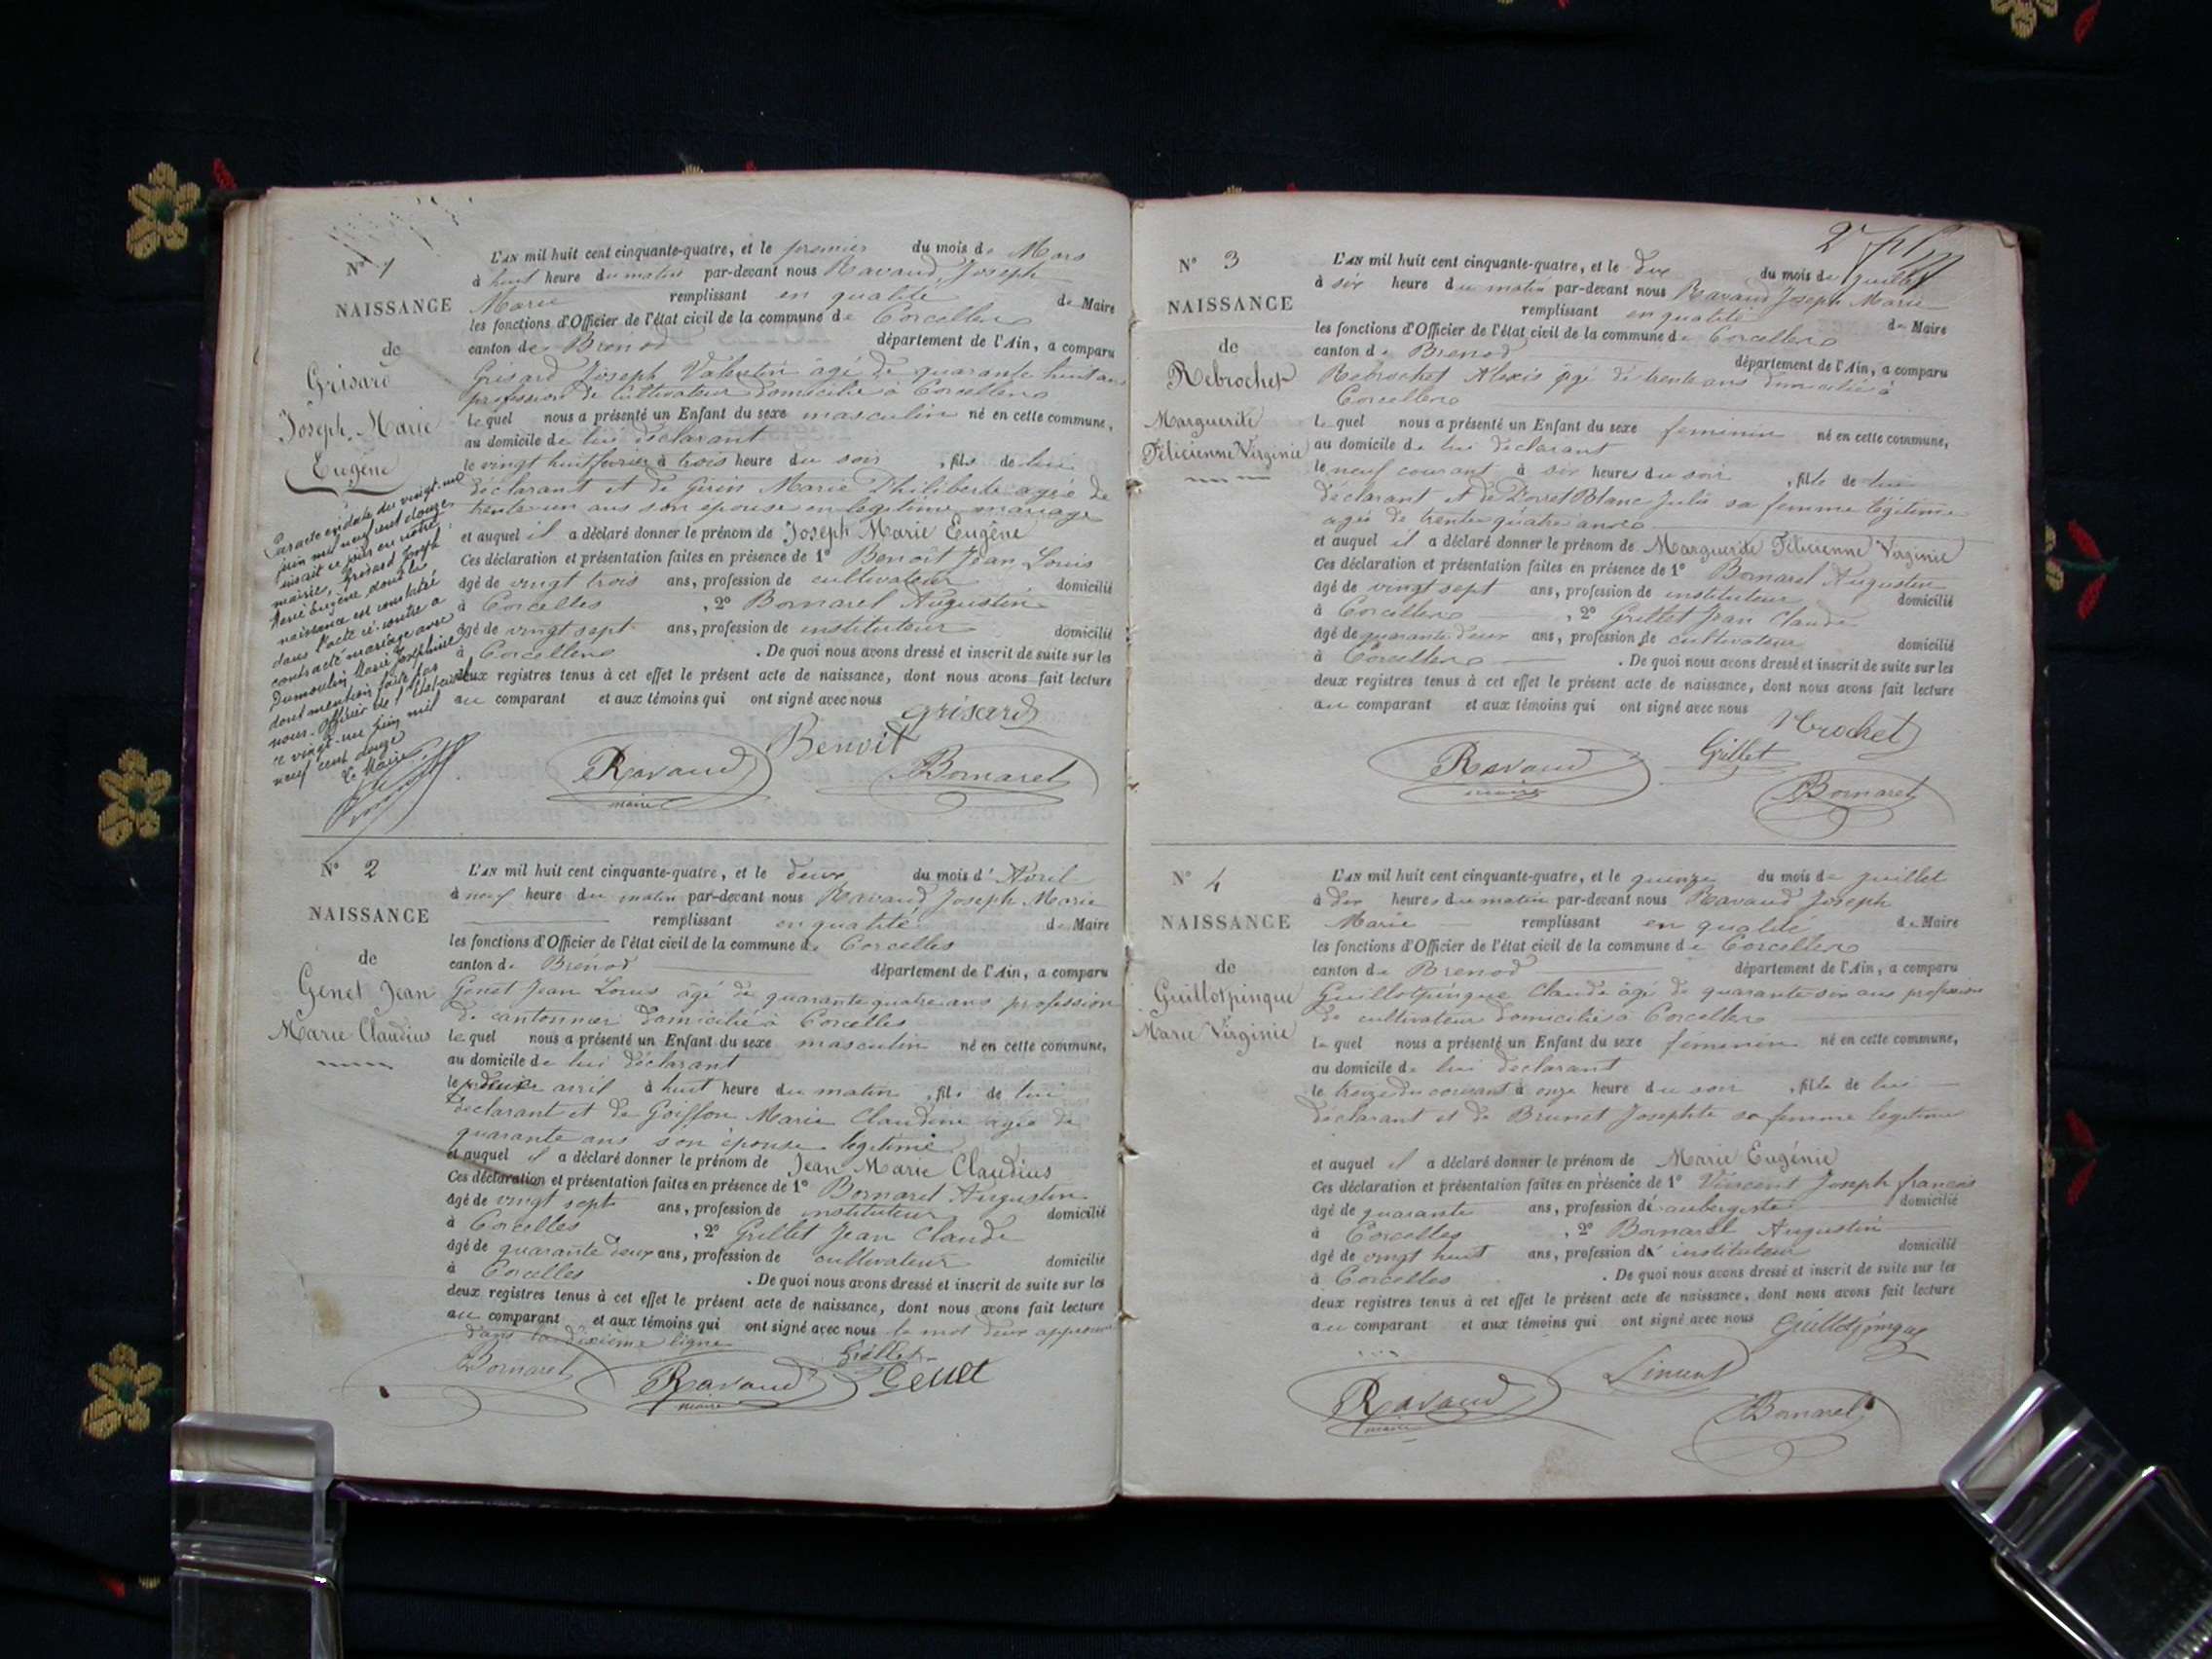 N° 1
NAISSANCE
de
Grisard
Joseph Marie
Eugène
Par acte en date du vingt-un
juin mil neuf cent douze
inscrit ce jour en notre
mairie, Grisard Joseph
Marie Eugène dont la
naissance est constatée
dans l'acte ci-contre a
contracté mariage avec
Dumoulin Marie Joséphine
dont mention faite par
nous, officier de l'état-civil
ce vingt-un juin mil
neuf cent douze
Le Maire
L'AN mil huit cent cinquante-quatre, et le premier du mois de Mars
à huit heure du matin par-devant nous Ravaud, Joseph
Marie remplissant en qualité de Maire
les fonctions d'Officier de l'état civil de la commune de Corcelles
canton de Brenod département de l'Ain, a comparu
Grisard Joseph Valentin âgé de quarante huit ans
profession de cultivateur domicilié à Corcelles
Lequel nous a présenté un Enfant du sexe masculin né en cette commune,
au domicile de lui déclarant
le vingt huit fevrier à trois heure du soir , fils de lui
déclarant et de Girin Marie Philiberte agée de
trente un ans son epouse en legitime mariage
et auquel il a déclaré donner le prénom de Joseph Marie Eugêne
Ces déclaration et présentation faites en présence de 1° Benoît Jean Louis
âgé de vingt trois ans, profession de cultivateur domicilié
à Corcelles , 2° Bornarel Augustin
âgé de vingt sept ans, profession de instituteur domicilié
à Corcelles . De quoi nous avons dressé et inscrit de suite sur les
deux registres tenus à cet effet le présent acte de naissance, dont nous avons fait lecture
au comparant et aux témoins qui ont signé avec nous
Grisard
Benoit
Ravaud
maire
Bornarel
N° 2
NAISSANCE
de
Genet Jean
Marie Claudius
L'AN mil huit cent cinquante-quatre, et le deux du mois d'Avril
à neuf heure du matin par-devant nous Ravaud Joseph Marie
remplissant en qualité de Maire
les fonctions d'Officier de l'état civil de la commune de Corcelles
canton de Brénod département de l'Ain, a comparu
Genet Jean Louis âgé de quarante quatre ans profession
de cantonnier domicilié à Corcelles
lequel nous a présenté un Enfant du sexe masculin né en cette commune,
au domicile de lui déclarant
le deux avril à huit heure du matin , fils de lui
declarant et de Goiffon Marie Claudine agée de
quarante ans son épouse legitime
et auquel il a déclaré donner le prénom de Jean Marie Claudius
Ces déclaration et présentation faites en présence de 1° Bornarel Augustin
âgé de vingt sept ans, profession de instituteur domicilié
à Corcelles , 2° Grillet Jean Claude
âgé de quarante deux ans, profession de cultivateur domicilié
à Corcelles . De quoi nous avons dressé et inscrit de suite sur les
deux registres tenus à cet effet le présent acte de naissance, dont nous avons fait lecture
au comparant et aux témoins qui ont signé avec nous le mot deux
dans la dixième ligne
Bornarel
Ravaud
maire
Grillet
Genet
2e
N° 3
NAISSANCE
de
Rebrochet
Marguerite
Félicienne Virginie
L'AN mil huit cent cinquante-quatre, et le dix du mois de juillet
à six heure du matin par-devant nous Ravaud Joseph Marie
remplissant en qualité de Maire
les fonctions d'Officier de l'état civil de la commune de Corcelles
canton de Brenod département de l'Ain, a comparu
Rebrochet Alexis âgé de trente ans domicilié à
Corcelles
Lequel nous a présenté un Enfant du sexe feminin né en cette commune,
au domicile de lui déclarant
le neuf courant à six heures du soir , fille de lui
déclarant et de Blanc Julie sa femme légitime
agée de trente quatre ans
et auquel il a déclaré donner le prénom de Marguerite Félicienne Virginie
Ces déclaration et présentation faites en présence de 1° Bornarel Augustin
âgé de vingt sept ans, profession de instituteur domicilié
à Corcelles , 2° Grillet Jean Claude
âgé de quarante deux ans, profession de cultivateur domicilié
à Corcelles . De quoi nous avons dressé et inscrit de suite sur les
deux registres tenus à cet effet le présent acte de naissance, dont nous avons fait lecture
au comparant et aux témoins qui ont signé avec nous
Ravaud
maire
Grillet
Bornarel
N° 4
NAISSANCE
de
Guillotpinque
Marie Virginie
L'AN mil huit cent cinquante-quatre, et le quinze du mois de juillet
à dix heures du matin par-devant nous Ravaud Joseph
Marie remplissant en qualité de Maire
les fonctions d'Officier de l'état civil de la commune de Corcelles
canton de Brenod département de l'Ain, a comparu
Guillotpinque Claude âgé de quarante six ans profession
de cultivateur domicilié à Corcelles
lequel nous a présenté un Enfant du sexe féminin né en cette commune,
au domicile de lui declarant
le treize du courant à onze heure du soir , fille de lui
déclarant et de Brunet Josephte sa femme legitime
et auquel il a déclaré donner le prénom de Marie Eugénie
Ces déclaration et présentation faites en présence de 1° Vincent Joseph francois
âgé de quarante ans, profession de aubergiste domicilié
à Corcelles , 2° Bornarel Augustin
âgé de vingt huit ans, profession d' instituteur domicilié
à Corcelles . De quoi nous avons dressé et inscrit de suite sur les
deux registres tenus à cet effet le présent acte de naissance, dont nous avons fait lecture
au comparant et aux témoins qui ont signé avec nous
Guillotpinque
Ravaud
maire
Vincent
Bornarel